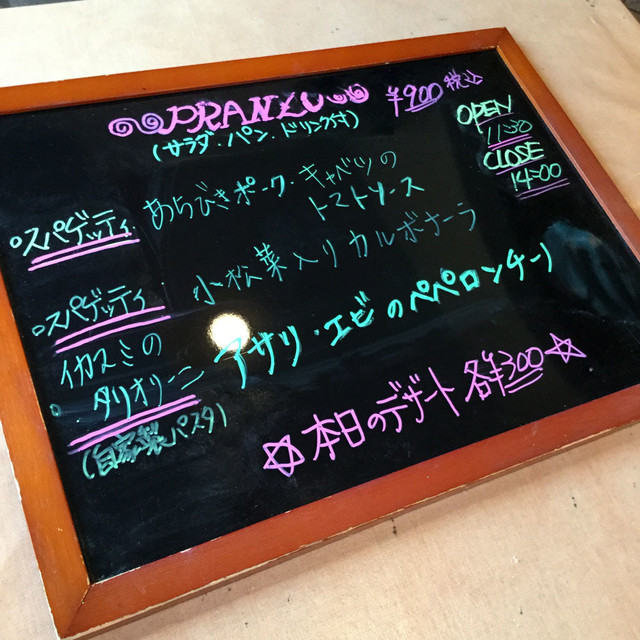 PRANZO ¥900 税込
(サラダ・パン・ドリンク付)
OPEN
11:30
CLOSE
14:00
○スパゲッティ あらびきポーク・キャベツの
トマトソース
○スパゲッティ 小松菜入りカルボナーラ
○イカスミの
タリオリーニ アサリ・エビのペペロンチーノ
(自家製パスタ)
☆本日のデザート 各¥300☆